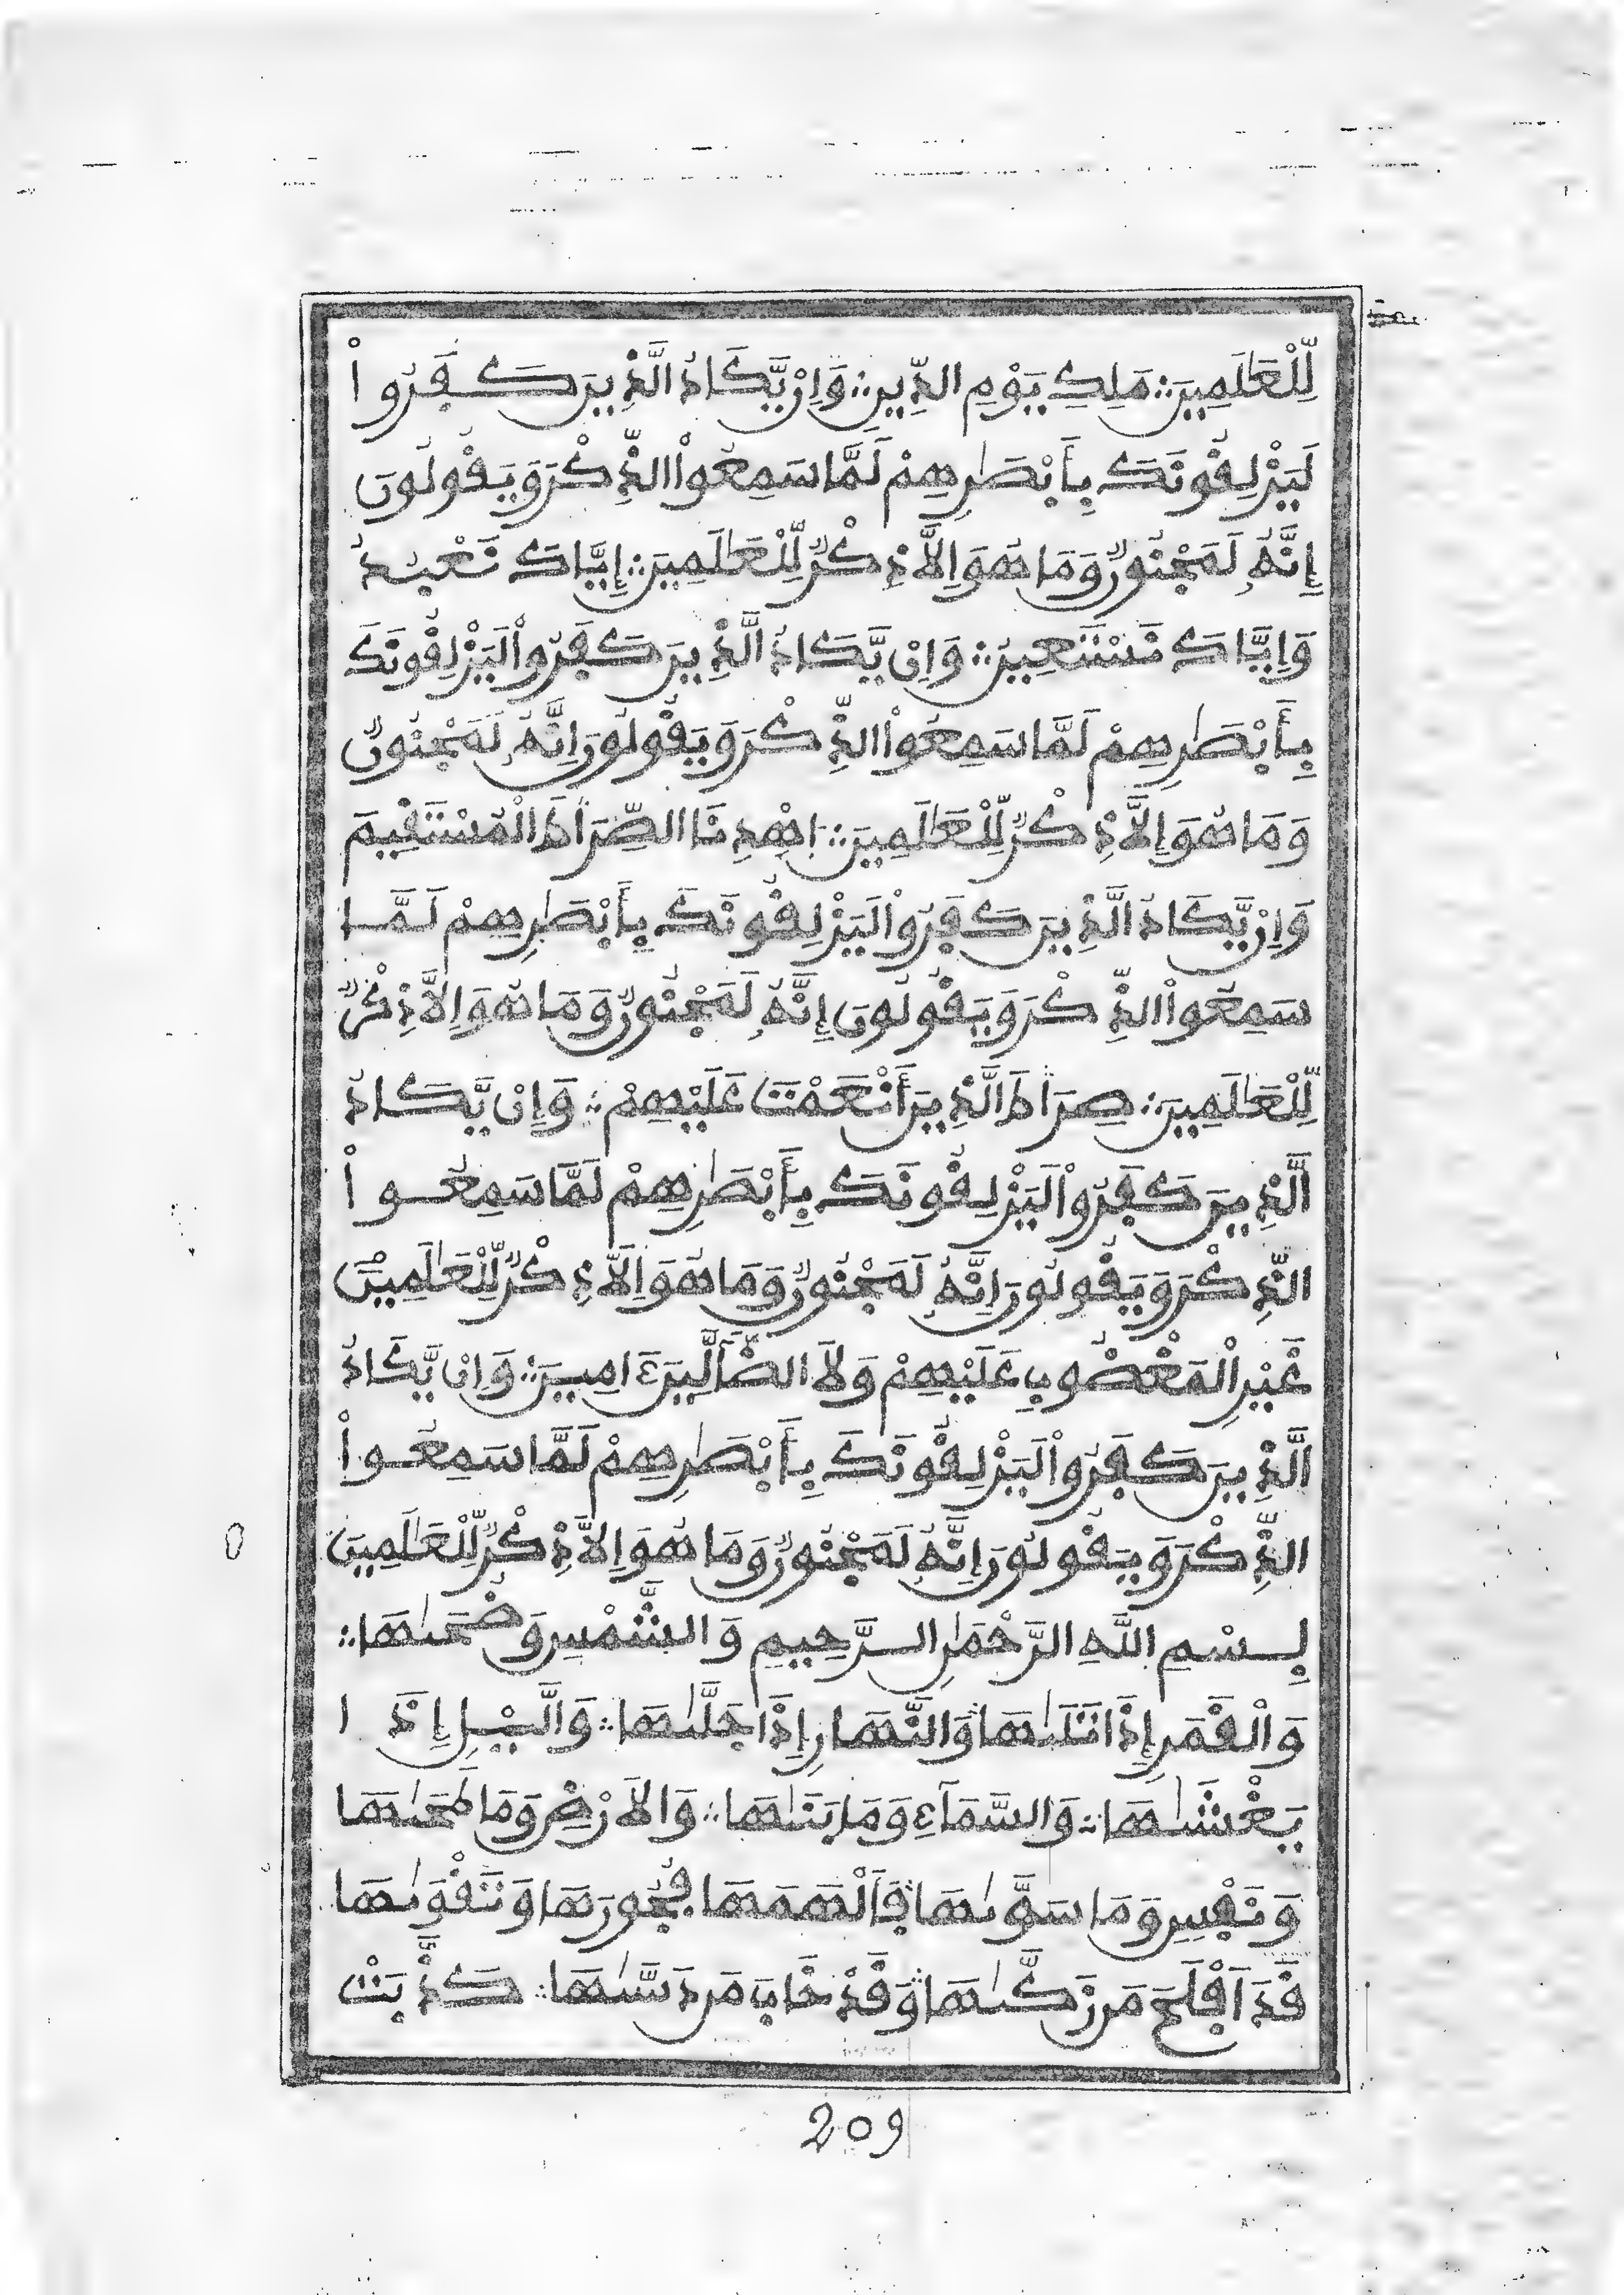 لِّلْعَٰلَمِينَ ∴ مَلِكِ يَوْمِ الدِّينِ ∴ وَإِنْ يَّكَادُ الَّذِينَ كَفَرُواْ
لَيَزْلِقُونَكَ بِأَبْصَٰرِهِمْ لَمَّا سَمِعُواْ الذِّكْرَ وَيَقُولُونَ
إِنَّهُۥ لَمَجْنُونٌ وَمَا هُوَ إِلاَّ ذِكْرٌ لِّلْعَٰلَمِينَ ∴ إِيَّاكَ نَعْبُدُ
وَإِيَّاكَ نَسْتَعِينُ ∴ وَإِنْ يَّكَادُ الَّذِينَ كَفَرُواْ لَيَزْلِقُونَكَ
بِأَبْصَٰرِهِمْ لَمَّا سَمِعُواْ الذِّكْرَ وَيَقُولُونَ إِنَّهُۥ لَمَجْنُونٌ
وَمَا هُوَ إِلاَّ ذِكْرٌ لِّلْعَٰلَمِينَ ∴ اِهْدِنَا الصِّرَاطَ الْمُسْتَقِيمَ
وَإِنْ يَّكَادُ الَّذِينَ كَفَرُواْ لَيَزْلِقُونَكَ بِأَبْصَٰرِهِمْ لَمَّا
سَمِعُواْ الذِّكْرَ وَيَقُولُونَ إِنَّهُۥ لَمَجْنُونٌ وَمَا هُوَ إِلاَّ ذِكْرٌ
لِّلْعَٰلَمِينَ ∴ صِرَاطَ الَّذِينَ أَنْعَمْتَ عَلَيْهِمْ ∴ وَإِنْ يَّكَادُ
الَّذِينَ كَفَرُواْ لَيَزْلِقُونَكَ بِأَبْصَٰرِهِمْ لَمَّا سَمِعُواْ
الذِّكْرَ وَيَقُولُونَ إِنَّهُۥ لَمَجْنُونٌ وَمَا هُوَ إِلاَّ ذِكْرٌ لِّلْعَٰلَمِينَ
غَيْرِ الْمَغْضُوبِ عَلَيْهِمْ وَلاَ الضَّآلِّينَ ءَامِينَ ∴ وَإِنْ يَّكَادُ
الَّذِينَ كَفَرُواْ لَيَزْلِقُونَكَ بِأَبْصَٰرِهِمْ لَمَّا سَمِعُواْ
الذِّكْرَ وَيَقُولُونَ إِنَّهُۥ لَمَجْنُونٌ وَمَا هُوَ إِلاَّ ذِكْرٌ لِّلْعَٰلَمِينَ
بِسْمِ اللَّهِ الرَّحْمَٰنِ الرَّحِيمِ وَالشَّمْسِ وَضُحَىٰهَا ∴
وَالْقَمَرِ إِذَا تَلَىٰهَا ∴ وَالنَّهَارِ إِذَا جَلَّىٰهَا ∴ وَالَّيْلِ إِذَا
يَغْشَىٰهَا ∴ وَالسَّمَآءِ وَمَا بَنَىٰهَا ∴ وَالاَرْضِ وَمَا طَحَىٰهَا
وَنَفْسٍ وَمَا سَوَّىٰهَا ∴ فَأَلْهَمَهَا فُجُورَهَا وَتَقْوَىٰهَا
قَدَ اَفْلَحَ مَن زَكَّىٰهَا ∴ وَقَدْ خَابَ مَن دَسَّىٰهَا ∴ كَذَّبَتْ
209